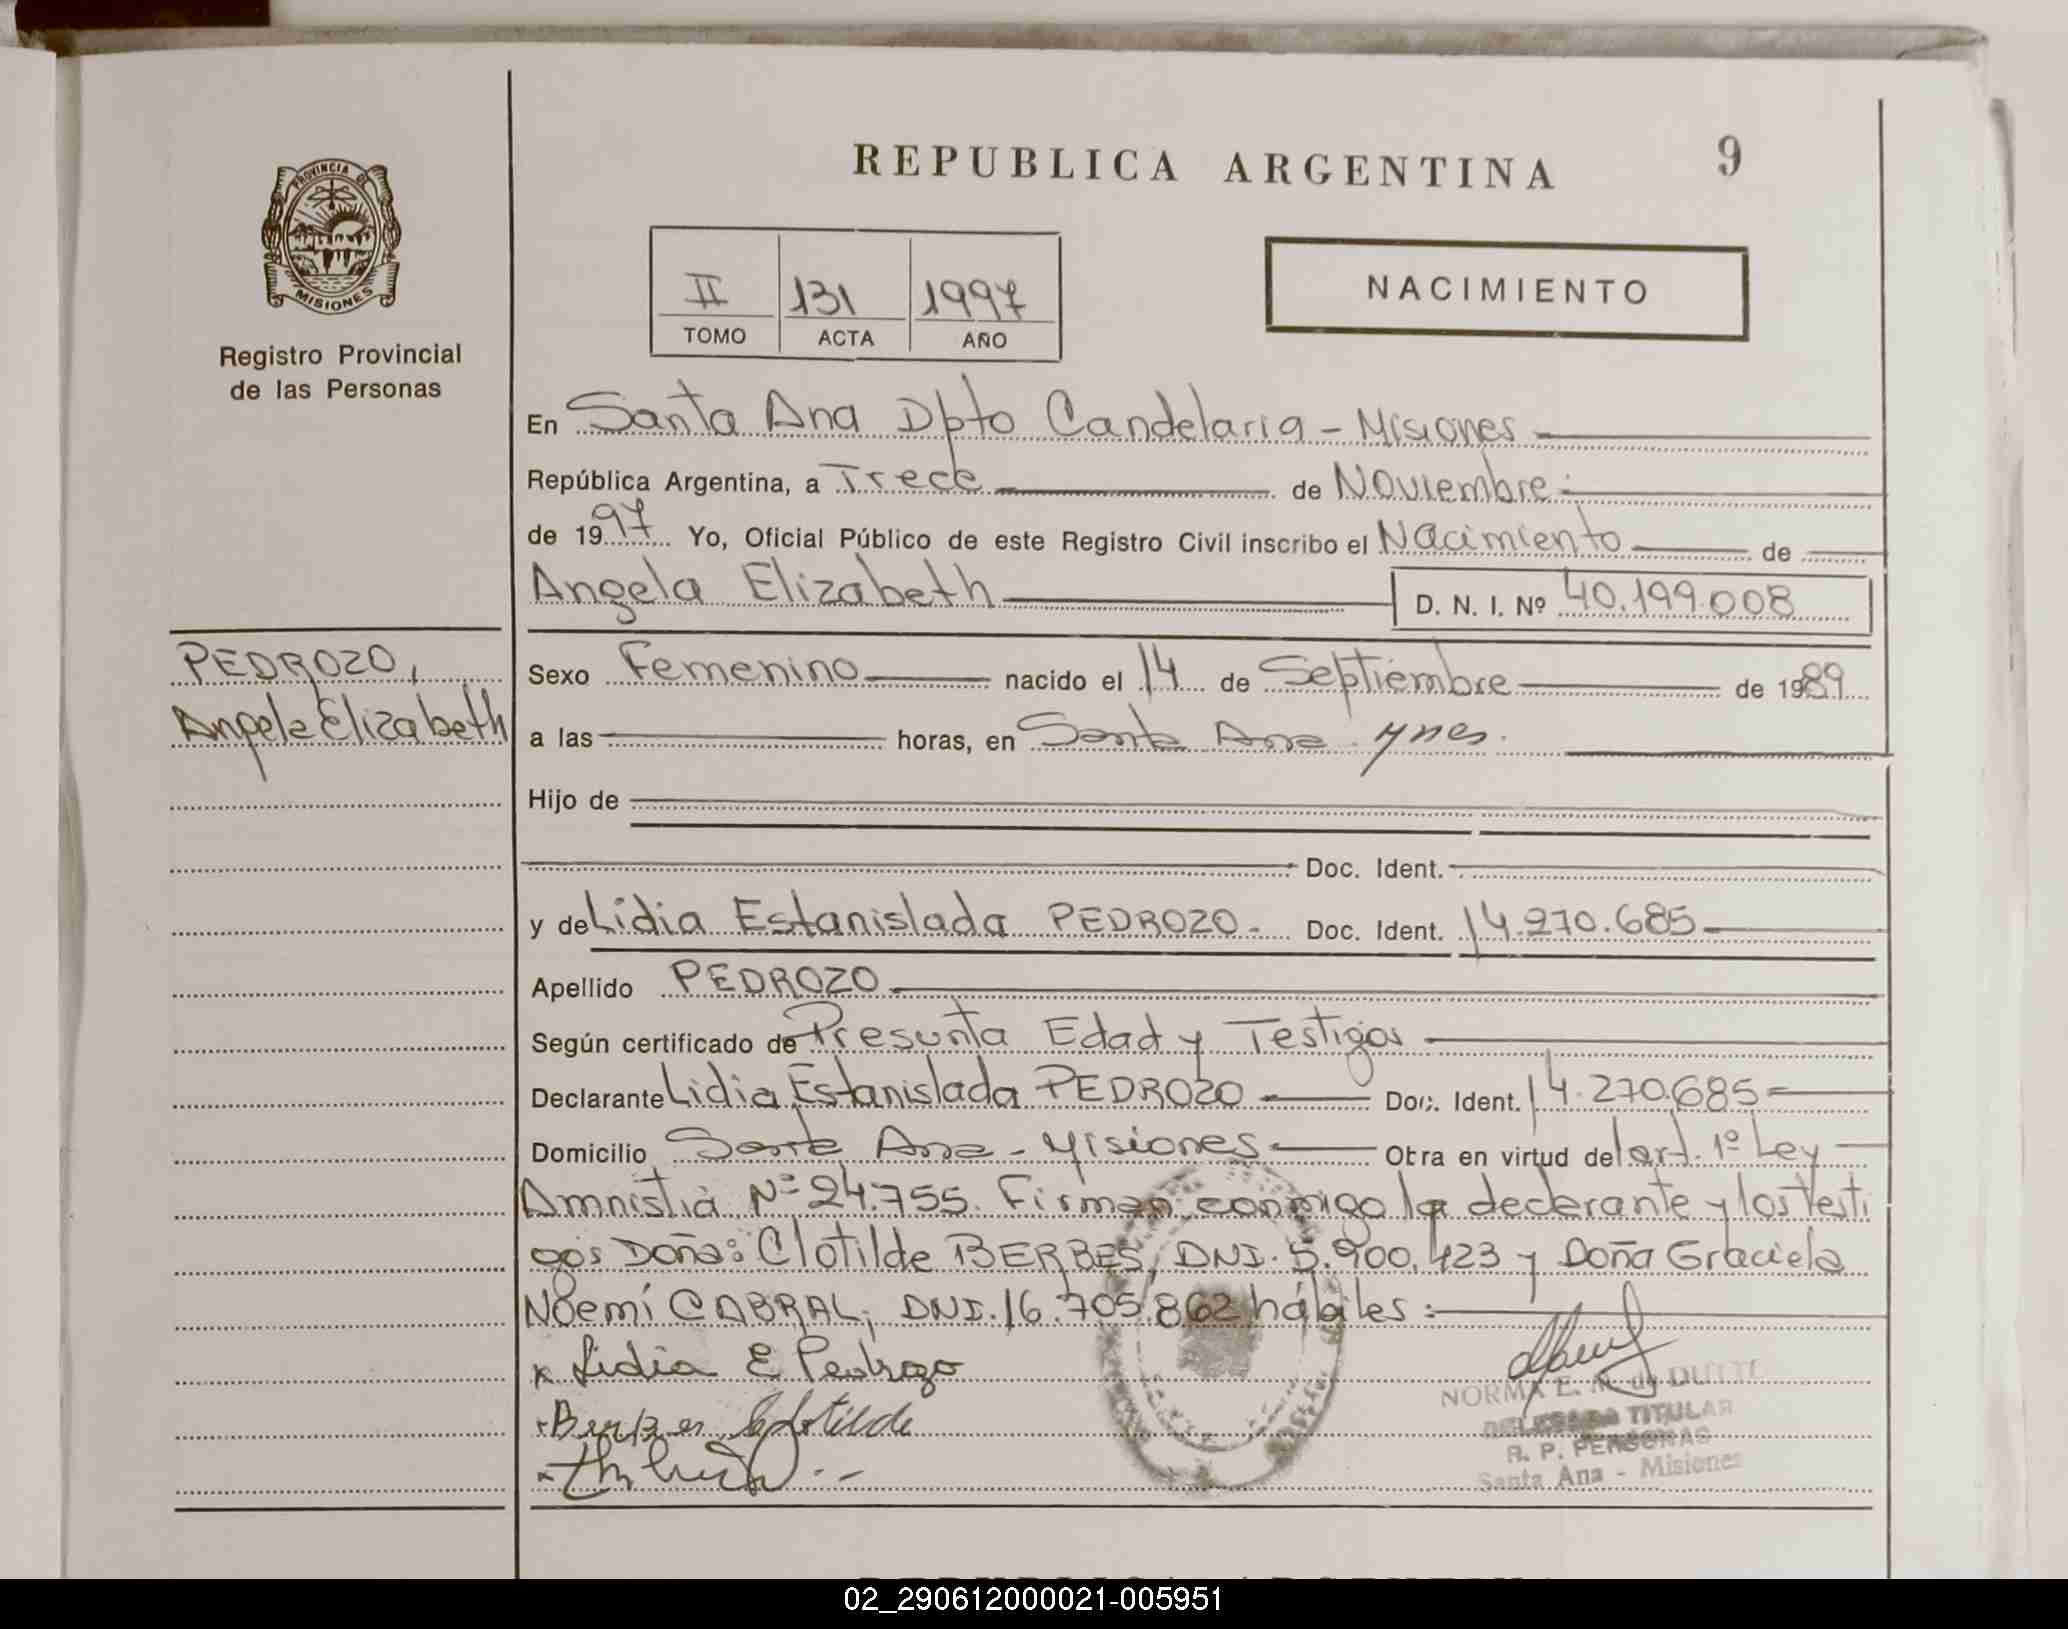 REPUBLICA ARGENTINA
9
PROVINCIA DE
MISIONES
Registro Provincial
de las Personas
II 131 1997
TOMO ACTA AÑO
NACIMIENTO
En Santa Ana Dpto Candelaria - Misiones
República Argentina, a Trece de Noviembre
de 1997 Yo, Oficial Público de este Registro Civil inscribo el Nacimiento de
Angela Elizabeth D. N. I. Nº 40.199.008
PEDROZO,
Angela Elizabeth
Sexo Femenino nacido el 14 de Septiembre de 1989
a las horas, en Santa Ana Mnes.
Hijo de
Doc. Ident.
y de Lidia Estanislada PEDROZO.- Doc. Ident. 14.270.685
Apellido PEDROZO
Según certificado de Presunta Edad y Testigos
Declarante Lidia Estanislada PEDROZO Doc. Ident. 14.270.685
Domicilio Santa Ana - Misiones Obra en virtud del art. 1º Ley
Amnistia Nº 24.755. Firman conmigo la declarante y los Testi
gos Doña: Clotilde BERBES, DNI. 5.900.423 y Doña Graciela
Noemí CABRAL, DNI. 16.705.862 hábiles:
x Lidia E Pedrozo
Berbes Clotilde
NORMA E. M. de
DELEGADA TITULAR
R. P. PERSONAS
Santa Ana - Misiones
02_290612000021-005951